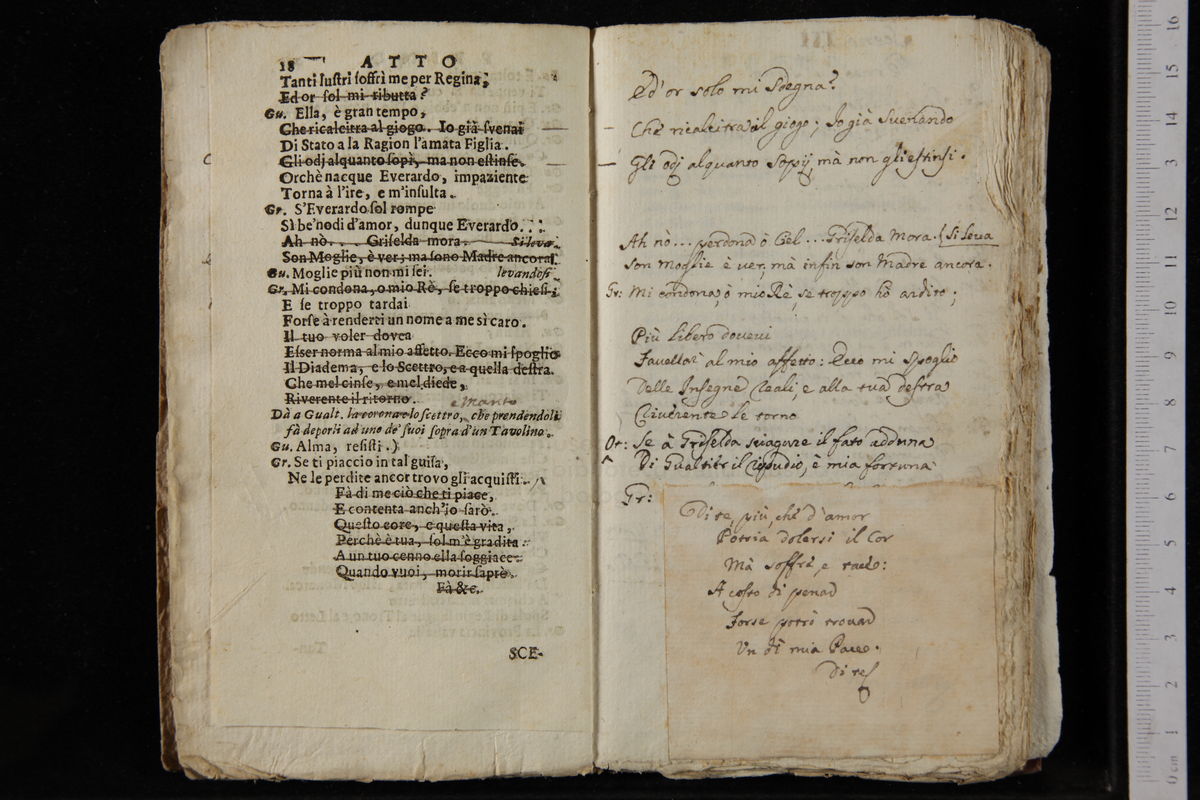 18 ATTO
Tanti lustri soffrì me per Regina;
Ed or sol mi ributta?
Gu. Ella, è gran tempo,
Che ricalcitra al giogo. Io già svenai
Di Stato a la Ragion l'amata Figlia.
Gli odj alquanto sopì, ma non estinse.
Orchè nacque Everardo, impaziente
Torna à l'ire, e m'insulta.
Gr. S'Everardo sol rompe
Sì be' nodi d'amor, dunque Everardo...
Ah nò... Griselda mora. Si leva.
Son Moglie, è ver; ma sono Madre ancora.
Gu. Moglie più non mi sei. levandosi
Gr. Mi condona, o mio Rè, se troppo chiesi;
E se troppo tardai
Forse à renderti un nome a me sì caro.
Il tuo voler dovea
Esser norma al mio affetto. Ecco mi spoglio
Il Diadema, e lo Scettro, e a quella destra.
Che mel cinse, e mel diede,
Riverente il ritorno.
e Manto
Dà a Gualt. la corona e lo scettro, che prendendoli
fà deporli ad uno de' suoi sopra d'un Tavolino.
Gu. Alma, resisti.)
Gr. Se ti piaccio in tal guisa,
Ne le perdite ancor trovo gli acquisti.
Fà di me ciò che ti piace,
E contenta anch'io sarò.
Questo core, e questa vita,
Perchè è tua, sol m'è gradita:
A un tuo cenno ella soggiace:
Quando vuoi, morir saprò.
Fà &c.
SCE-
Ed' or solo mi Sdegna?
Che ricalcitra il giogo; Io già Svenando
Gli odj alquanto Sopij, mà non gli estinsi.
Ah nò... perdona ò Ciel... Griselda Mora. (Si leva
Son Moglie è ver, mà infin son Madre ancora.
Gr: Mi condona, ò mio Rè, se troppo hò ardito;
Più libero dovevi
Favellar al mio affetto: Ecco mi spoglio
Delle Insegne Reali, e alla tua destra
Riverente le torno
Ot: Se à Griselda sciagure il fato adduna
Di Gualtier il ripudio, è mia fortuna
Gr:
Di te, più, che d'amor
Potria dolersi il Cor
Mà soffrà, e taccio:
A costo di penar
Forse potrò trovar
Un dì mia Pace.
Di te